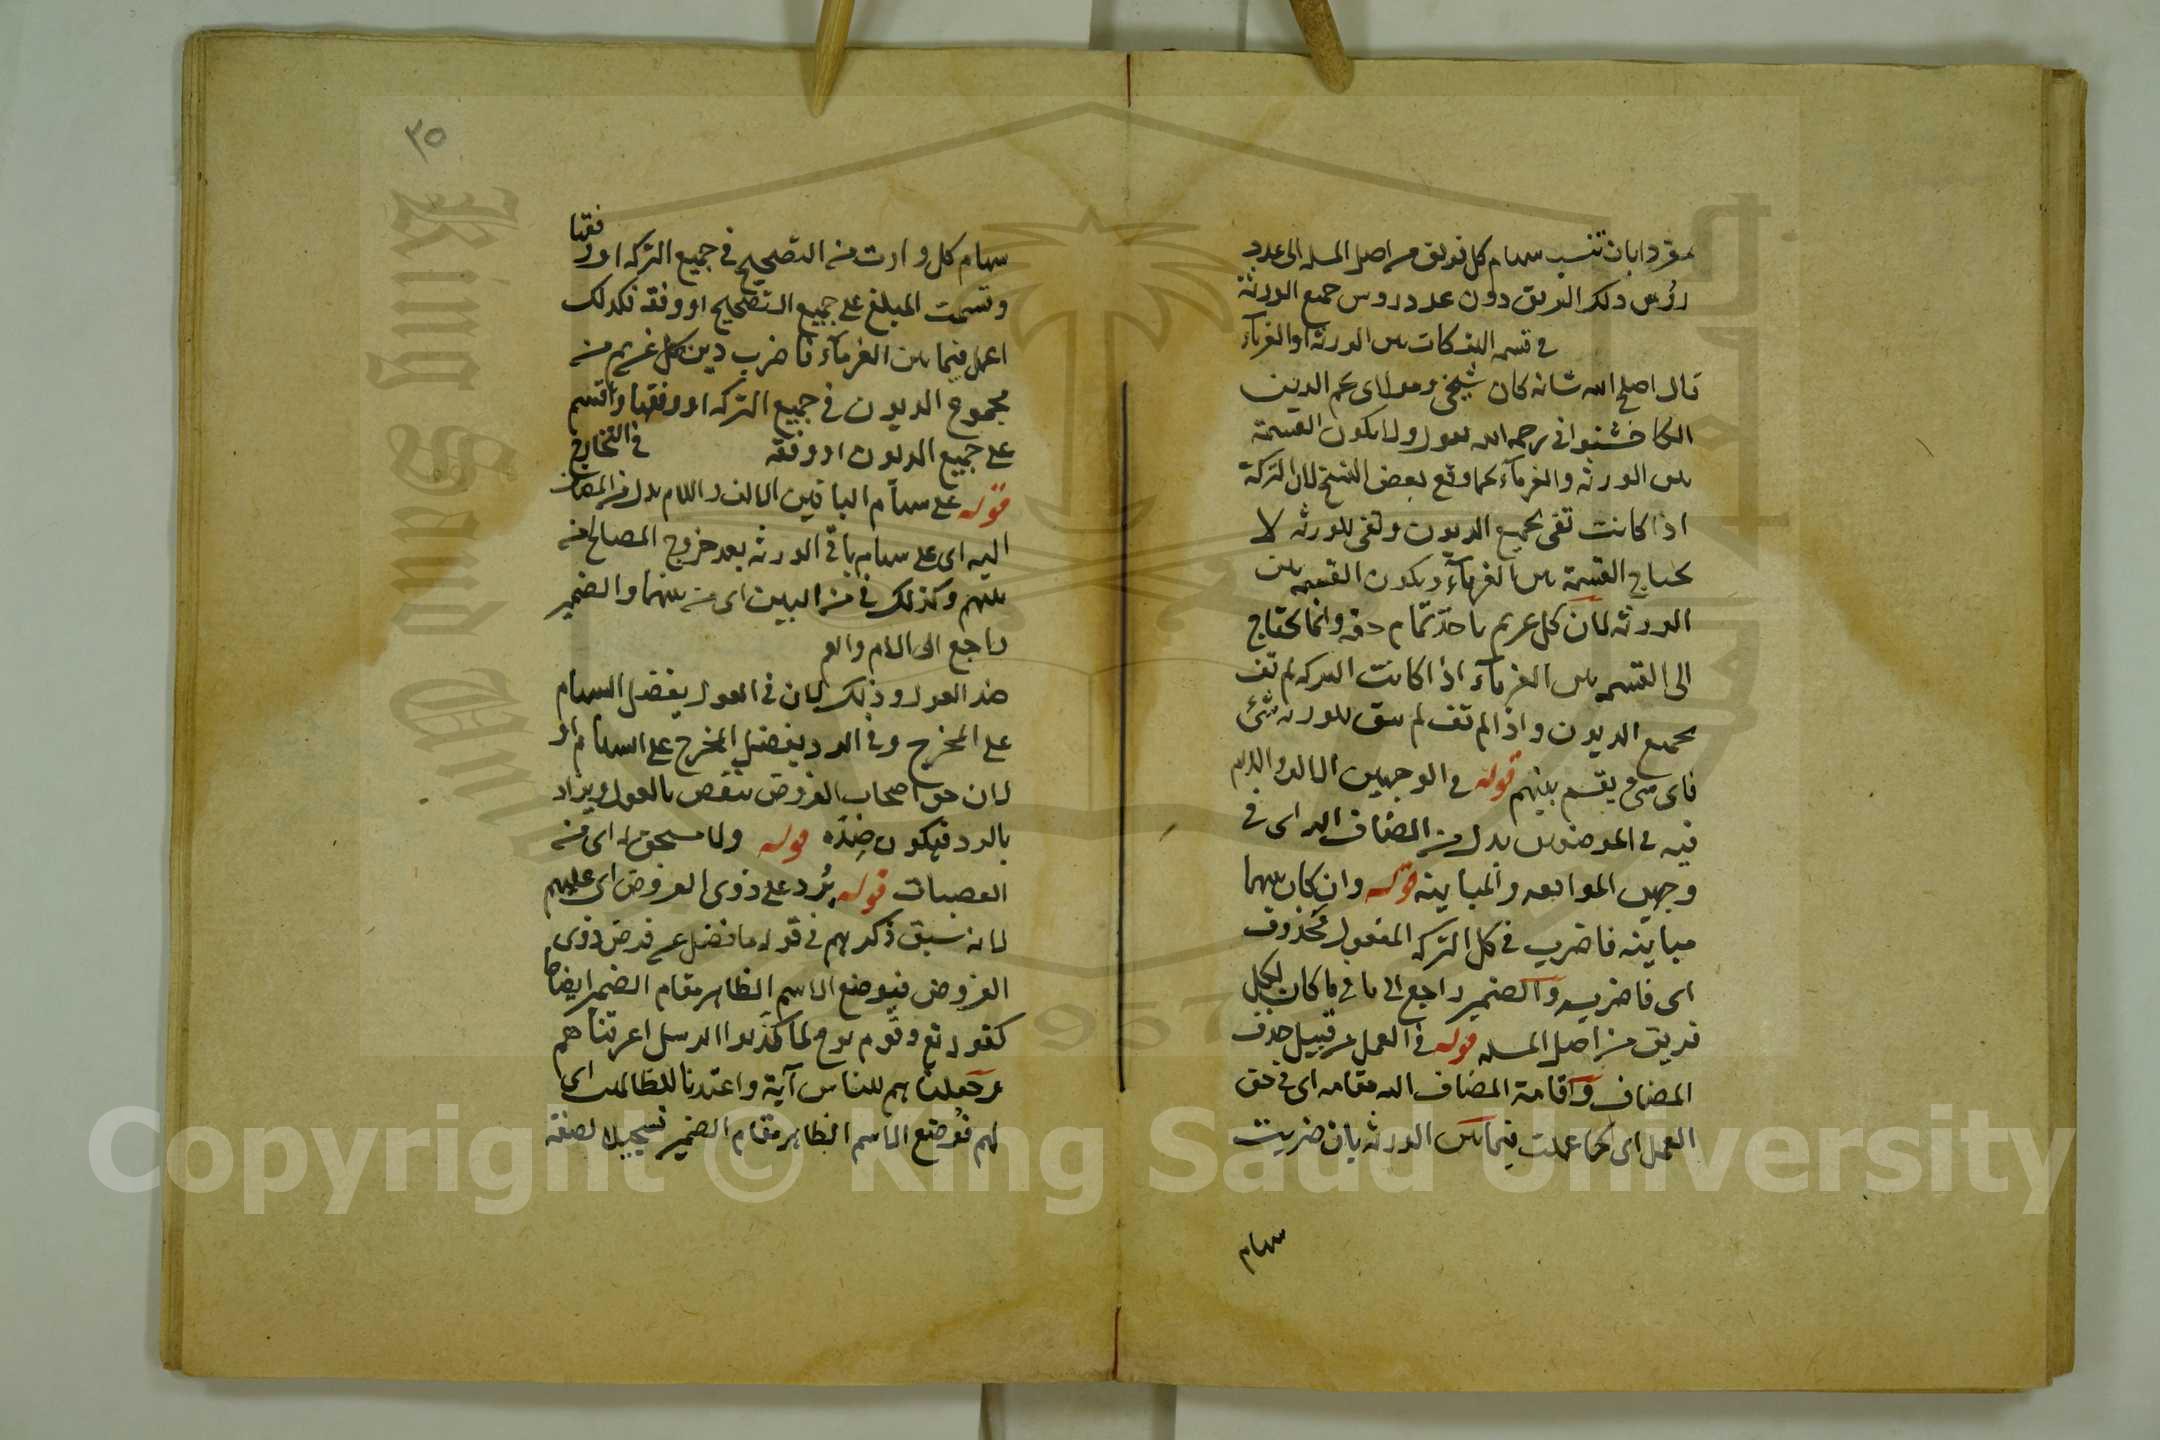 مفردا بان تنسب سهام كل فريق من اصل المسله الى عدد
رؤس ذلك الفريق دون عدد روس جميع الورثة
في قسمه التركات بين الورثة او الغرمآء
قال اصلح الله شانه كان شيخى ومولاى نجم الدين
الكاخشتوانى رحمه الله يقول ولا يكون القسمة
بين الورثه والغرمآء كما وقع بعض النسخ لان التركة
اذا كانت تفى بجميع الديون وتفى للورثه لا
يحتاج القسمة بين الغرمآء ويكون القسمه بين
الورثه لان كل غريم ياخذ تمام حقه وانما يحتاج
الى القسمه بين الغرمآء اذا كانت التركه لم تف
بجميع الديون واذا لم تف لم يبق للورثه شئ
فاى شئ يقسم بينهم قوله في الوجهين الالف واللام
فيه في الموضعين بدل من المضاف اليه اى في
وجهى الموافقه والمباينه قوله وان كان بينهما
مباينه فاضرب في كل التركه المفعول محذوف
اى فاضربه والضمير راجع الى ما في ما كان لكل
فريق من اصل المسله قوله في العمل من قبيل حذف
المضاف واقامة المضاف اليه مقامه اى في حق
العمل اى كما عملت فيما بين الورثه بان ضربت
سهام
٣٥
فقها
سهام كل وارث من التصحيح في جميع التركه او و
وقسمت المبلغ على جميع التصحيح او وفقه فكذلك
اعمل فيما بين الغرمآء فاضرب دين كل غريم من
مجموع الديون في جميع التركه او وفقها واقسم
على جميع الديون او وفقه في التخارج
قوله على سهام الباقين الالف واللام بدل من المضاف
اليه اى على سهام باقى الورثه بعد خروج المصالح من
بينهم وكذلك في من البين اى من بينهما والضمير
راجع الى الام والعم
ضد العول وذلك لان في العول يفضل السهام
على المخرج وفى الرد يفضل المخرج على السهام او
لان حق اصحاب الفروض ينقص بالعول ويزاد
بالرد فيكون ضده قوله ولا مستحق له اى من
العصبات قوله يرد على ذوى الفروض اى عليهم
لانه سبق ذكرهم في قوله ما فضل عن فرض ذوى
الفروض فيوضع الاسم الظاهر مقام الضمير ايضا
كقوله تع وقوم نوح لما كذبوا الرسل اغرقناهم
وجعلناهم للناس آية واعتدنا للظالمين اى
لهم فوضع الاسم الظاهر مقام الضمير تسجيلا لصفة
King Saud Univ
1957
Copyright © King Saud University